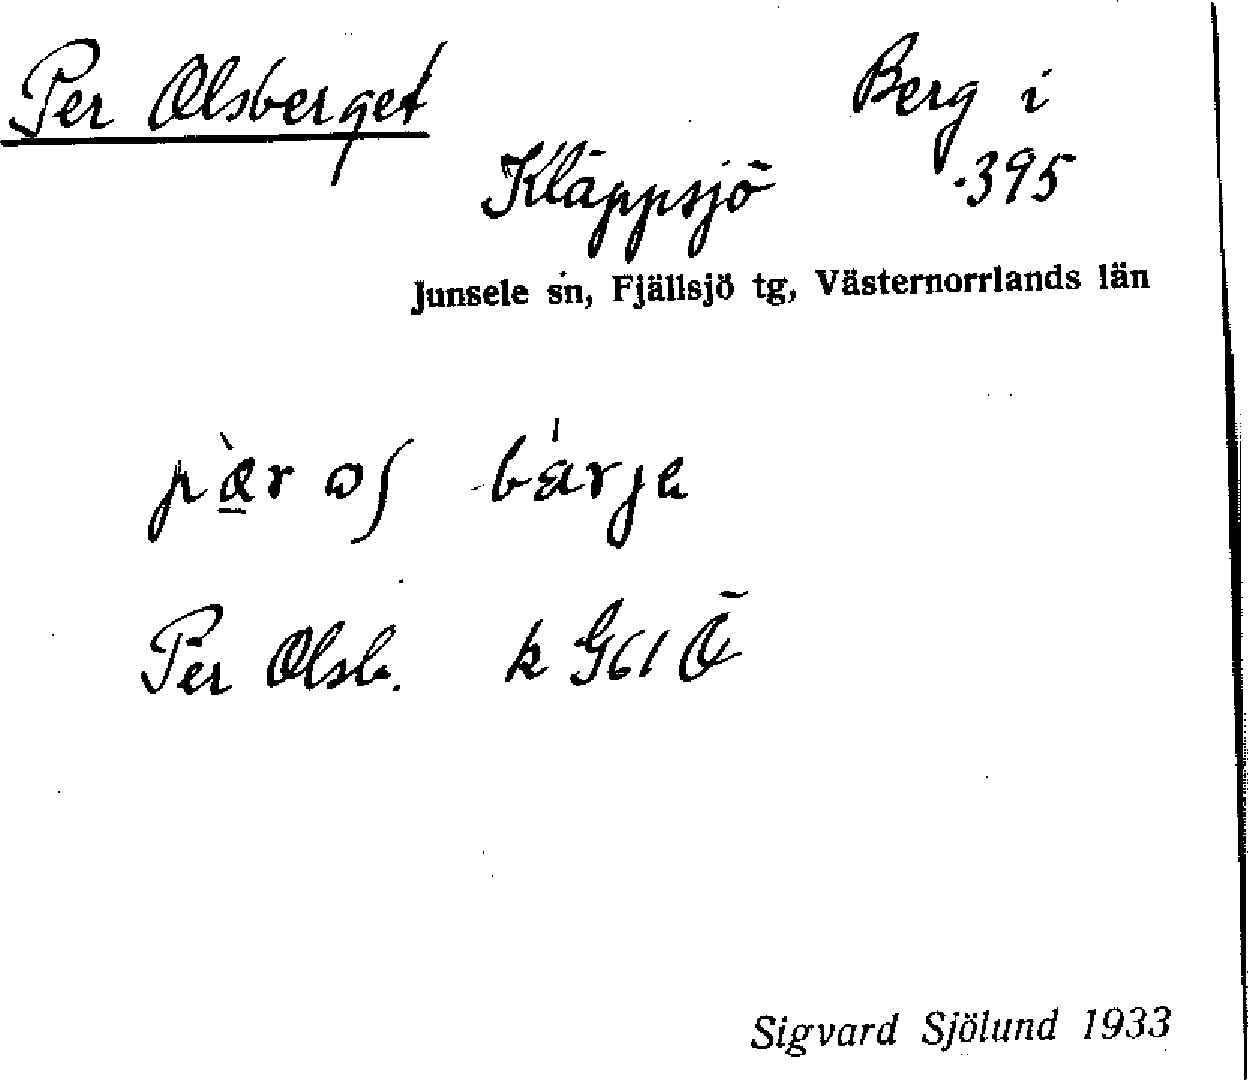 Per Olsberget Berg i
Kläppsjö -395
Junsele sn, Fjällsjö tg, Västernorrlands län
Per Olsb. k G61 Ö
Sigvard Sjölund 1933